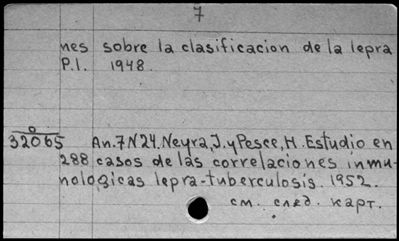 7
nes sobre la clasificacion de la lepra
P.I. 1948.
0
32065 An.7N24.Neyra,J.yPesce,H.Estudio en
288 casos de las correlaciones inmu-
nologicas lepra-tuberculosis. 1952.
см. след. карт.